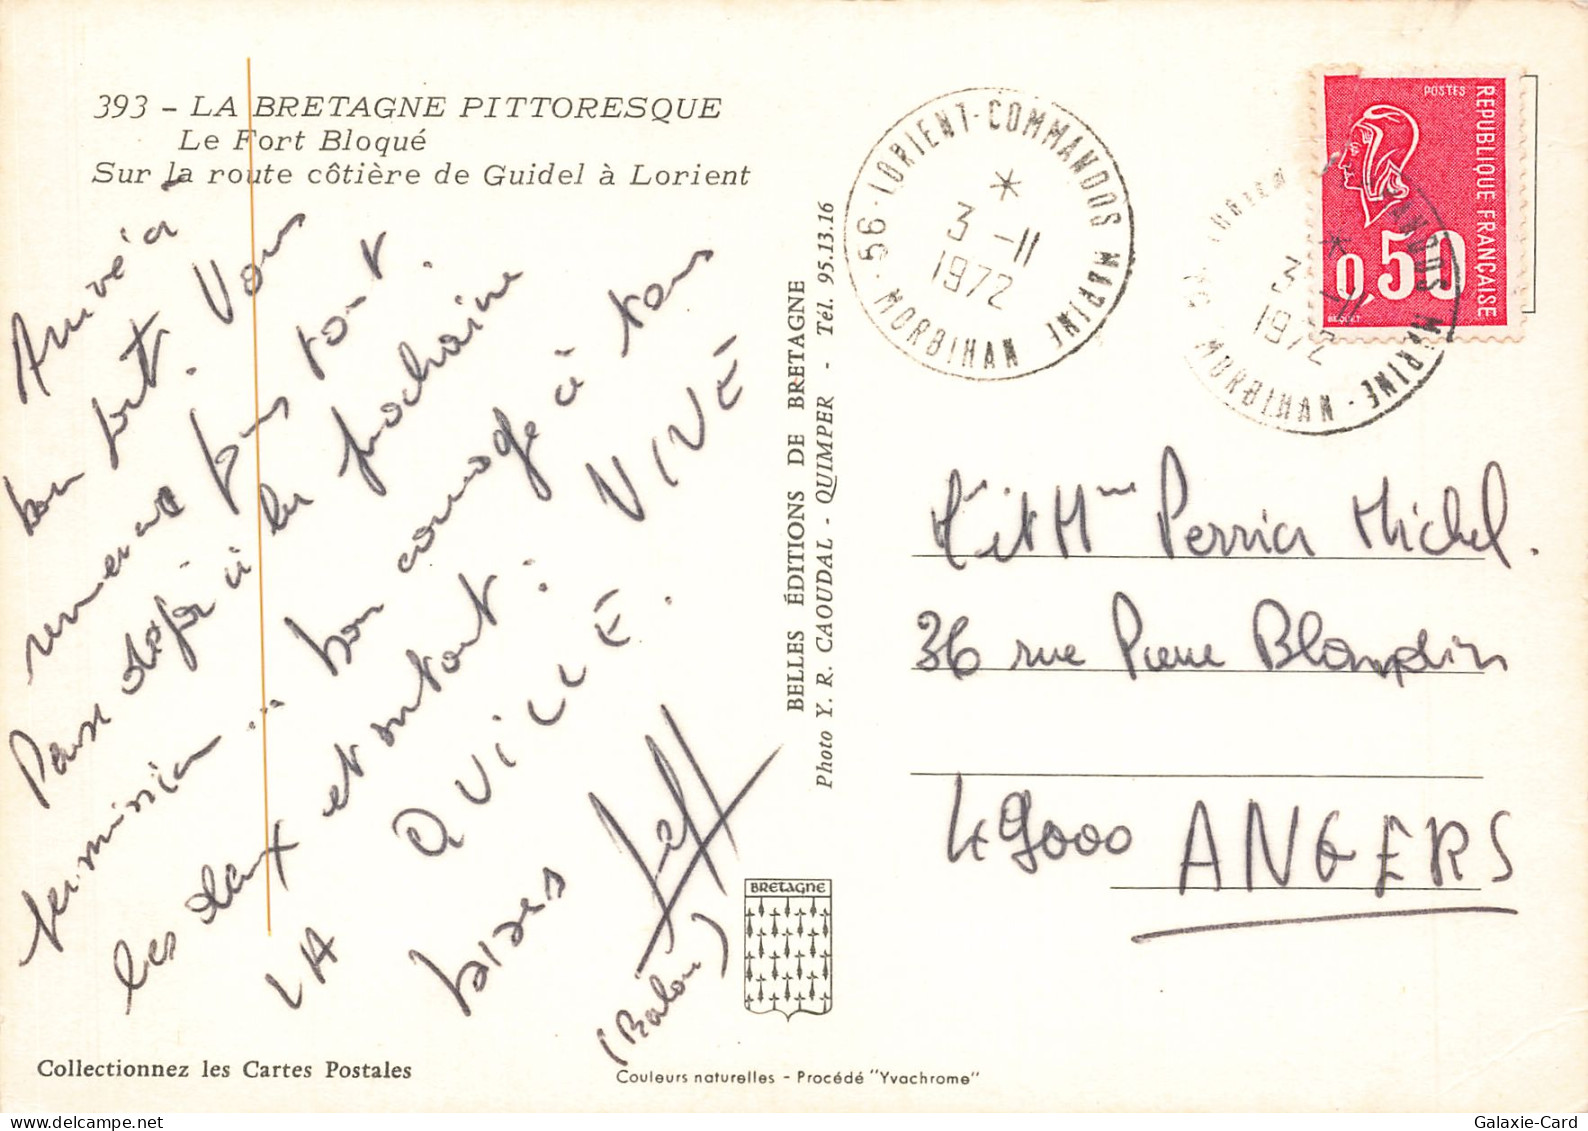 393 - LA BRETAGNE PITTORESQUE
Le Fort Bloqué
Sur la route côtière de Guidel à Lorient
Arrivé à
bon port. Vous
remercie pour tout.
Pense déjà à la prochaine
permission... bon courage à tous
les deux et surtout: VIVE
LA QUILLE.
bises
Jeff
(Balou)
BRETAGNE
Collectionnez les Cartes Postales
Couleurs naturelles - Procédé "Yvachrome"
BELLES ÉDITIONS DE BRETAGNE
Photo Y. R. CAOUDAL - QUIMPER - Tél. 95.13.16
56 - LORIENT-COMMANDOS MARINE
3 -11
1972
MORBIHAN
POSTES
REPUBLIQUE FRANÇAISE
0,50
BEQUET
3 -11
1972
MARINE - MORBIHAN
Mr et Mme Perrier Michel.
36 rue Pierre Blandin
49000 ANGERS
Galaxie-Card